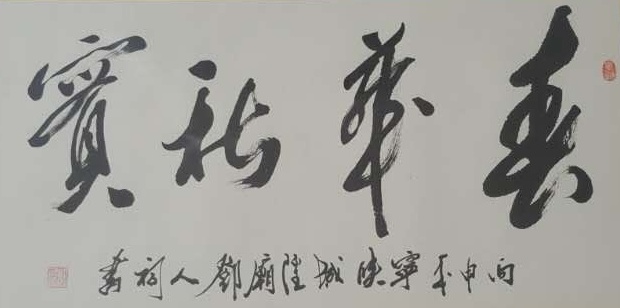 春華秋實
丙申年寧陝城隍廟鄧人祠書